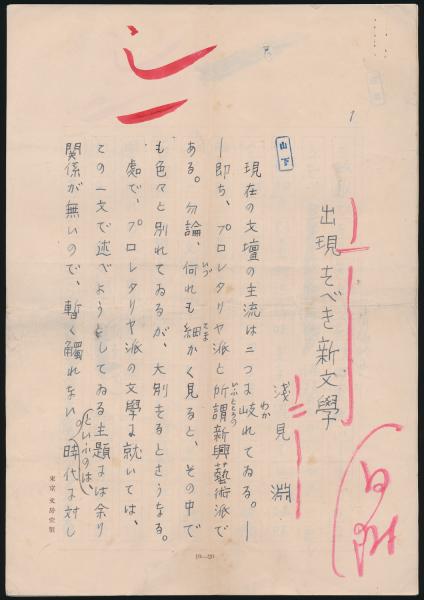 1
出現すべき新文學
淺見 淵
山下
現在の文壇の主流は二つに岐れてゐる。―
わか
―即ち、プロレタリヤ派と所謂新興藝術派で
いはゆる
ある。勿論、何れも細かく見ると、その中で
いづ
こま
も色々と別れてゐるが、大別するとさうなる。
處で、プロレタリヤ派の文學に就いては、
この一文で述べようとしてゐる主題には余り
関係が無いので、暫く觸れない。時代に対し
といふのは、
東京 文房堂製
10―20